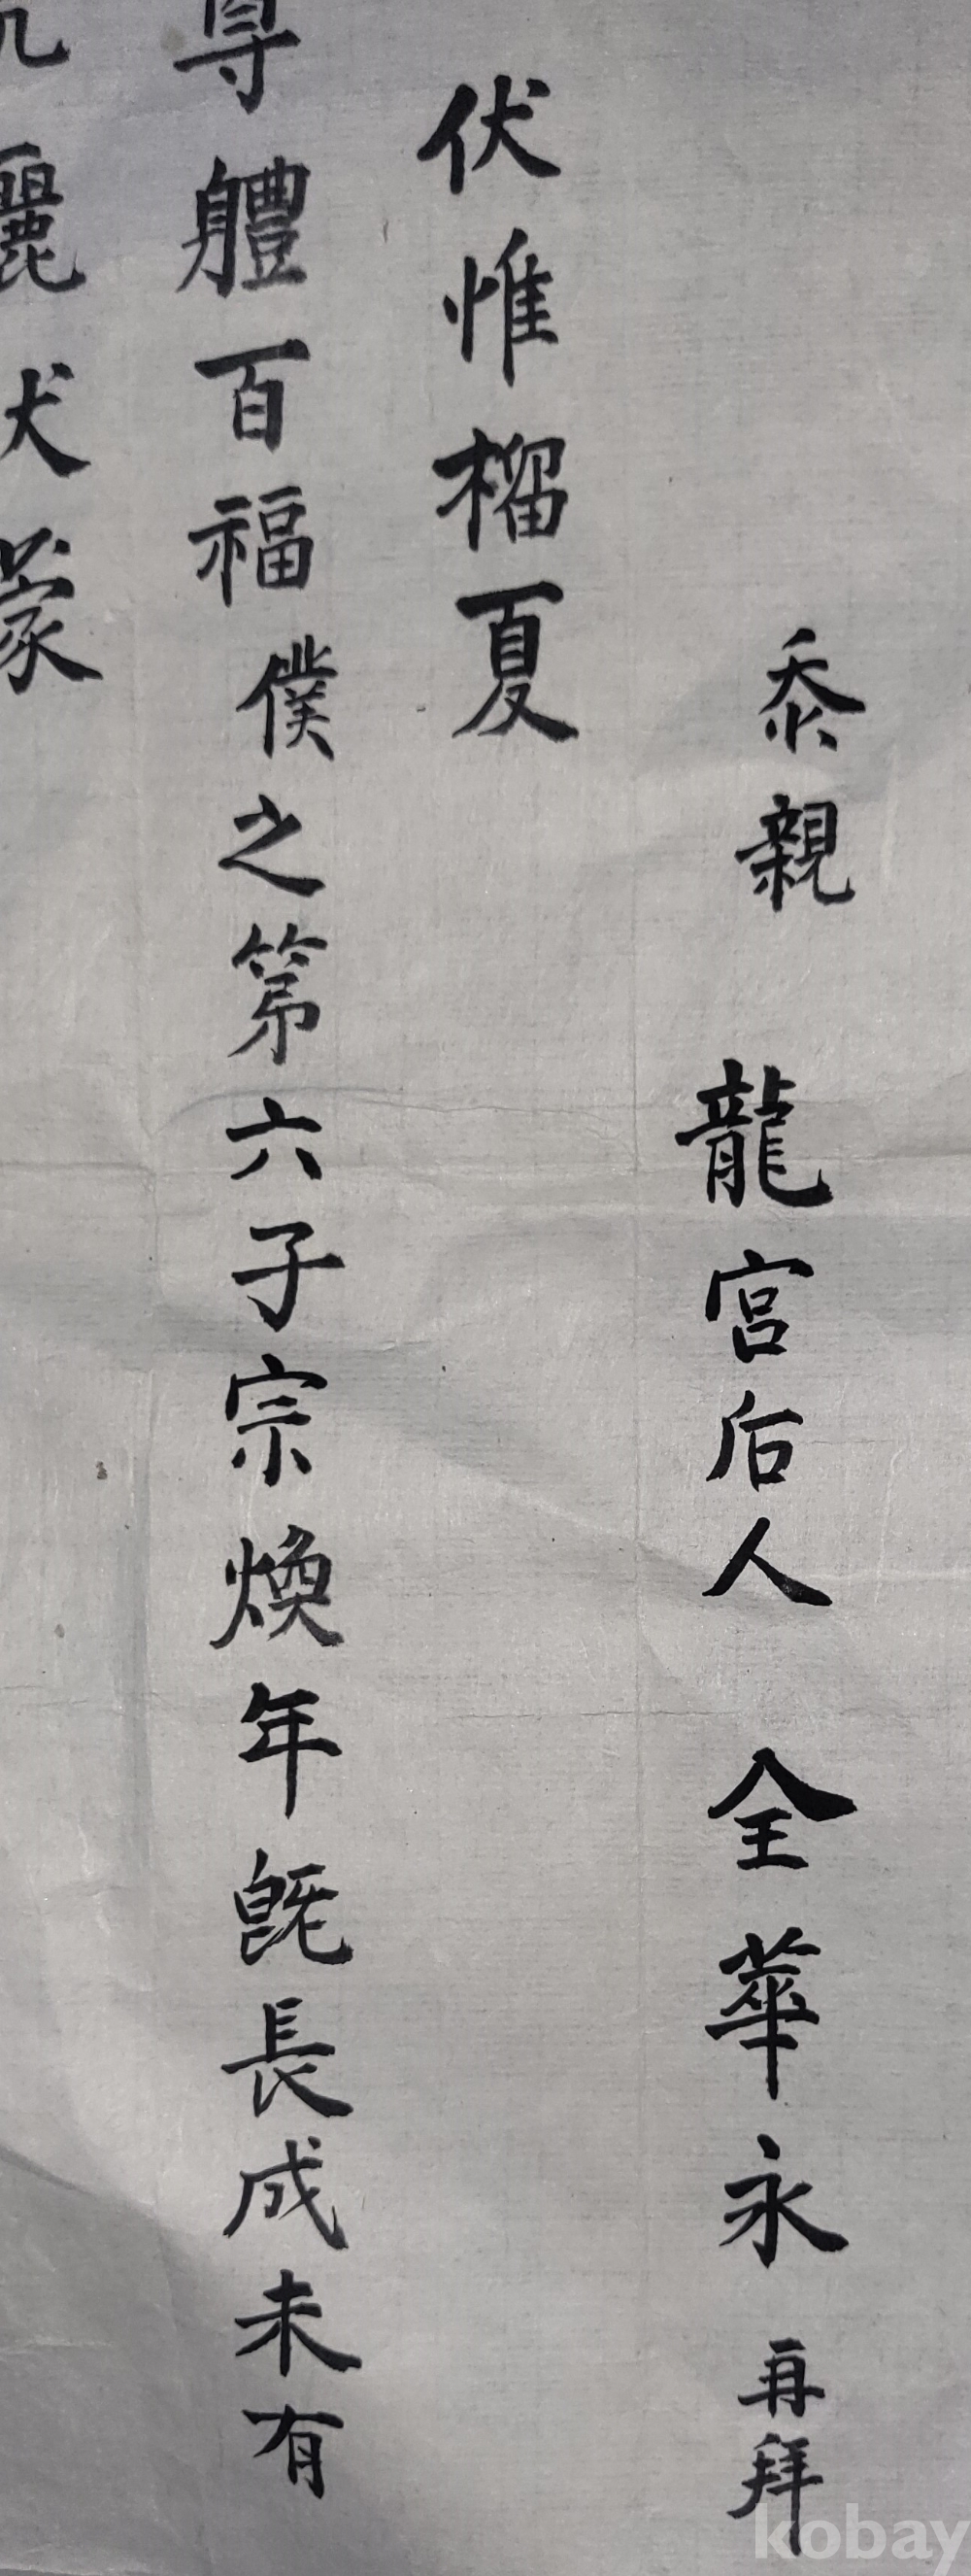 忝親 龍宮后人 全華永 再拜
伏惟榴夏
尊體百福僕之第六子宗煥年旣長成未有
伉儷伏蒙
kobay